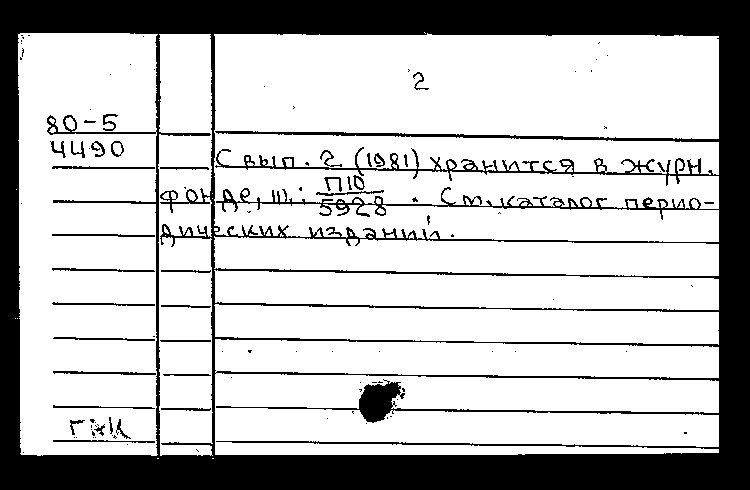 2
80-5
4490
С вып. 2 (1981) хранится в журн.
фонде, ш.: П10/5928 . См. каталог перио-
дических изданий.
ГАК